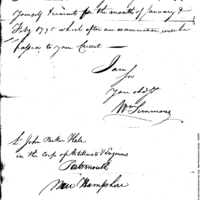 yourself & recruits for the month of January &
Feby 1795 which after an examination will be
passed to your Credit —
I am
Sir
your obdt St
Wm Simmons
Lt John Parker Hale
in the Corps of Artillerists & Engineers
Portsmouth
New Hampshire